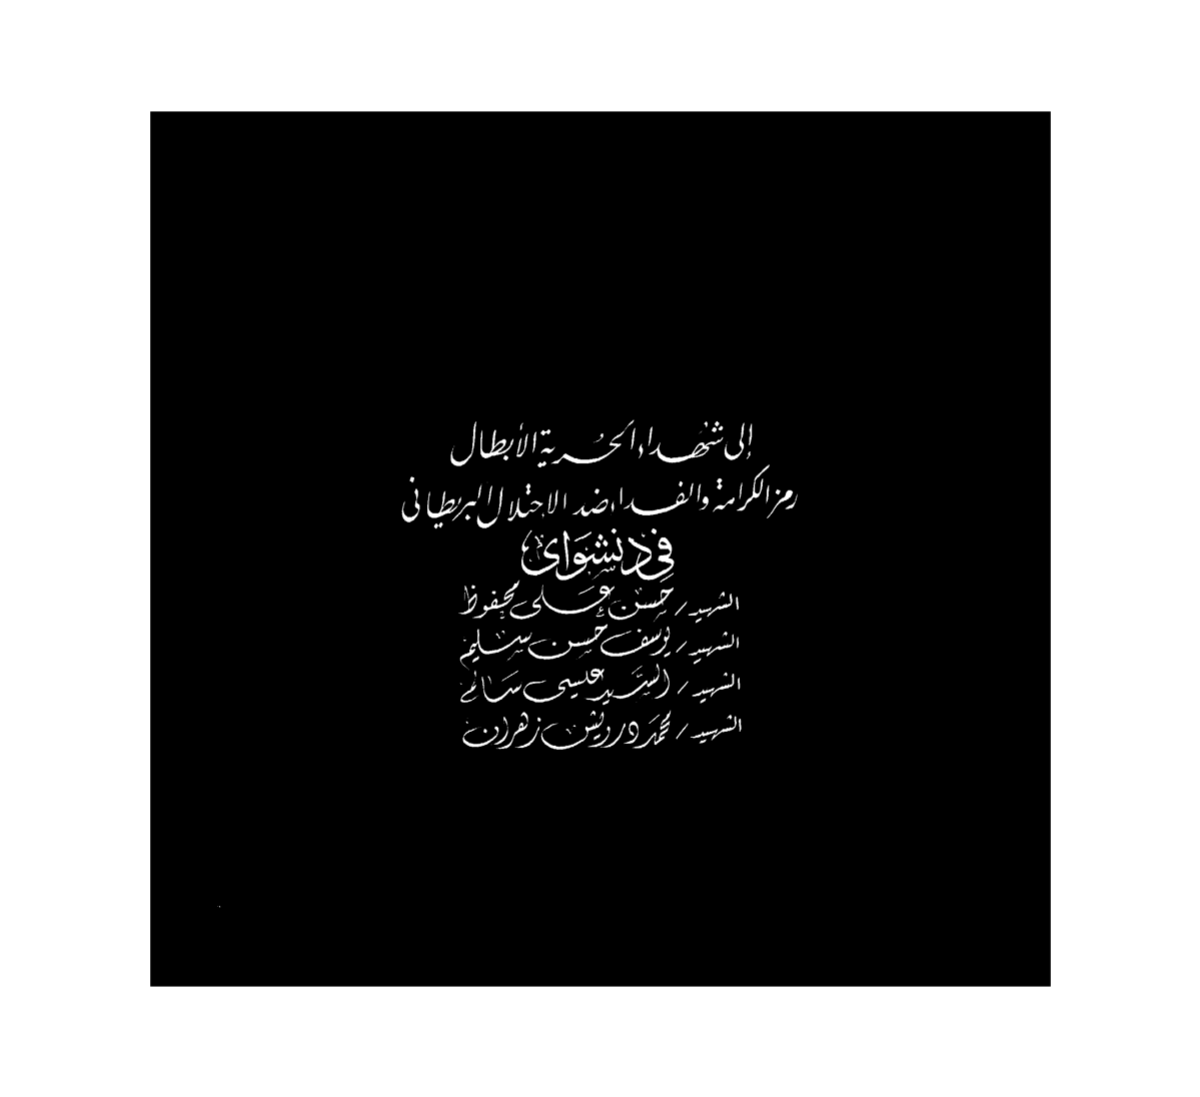 إلى شهداء الحرية الأبطال
رمز الكرامة والفداء ضد الاحتلال البريطاني
في دنشواى
الشهيد / حسن على محفوظ
الشهيد / يوسف حسن سليم
الشهيد / السيد عيسى سالم
الشهيد / محمد درويش زهران